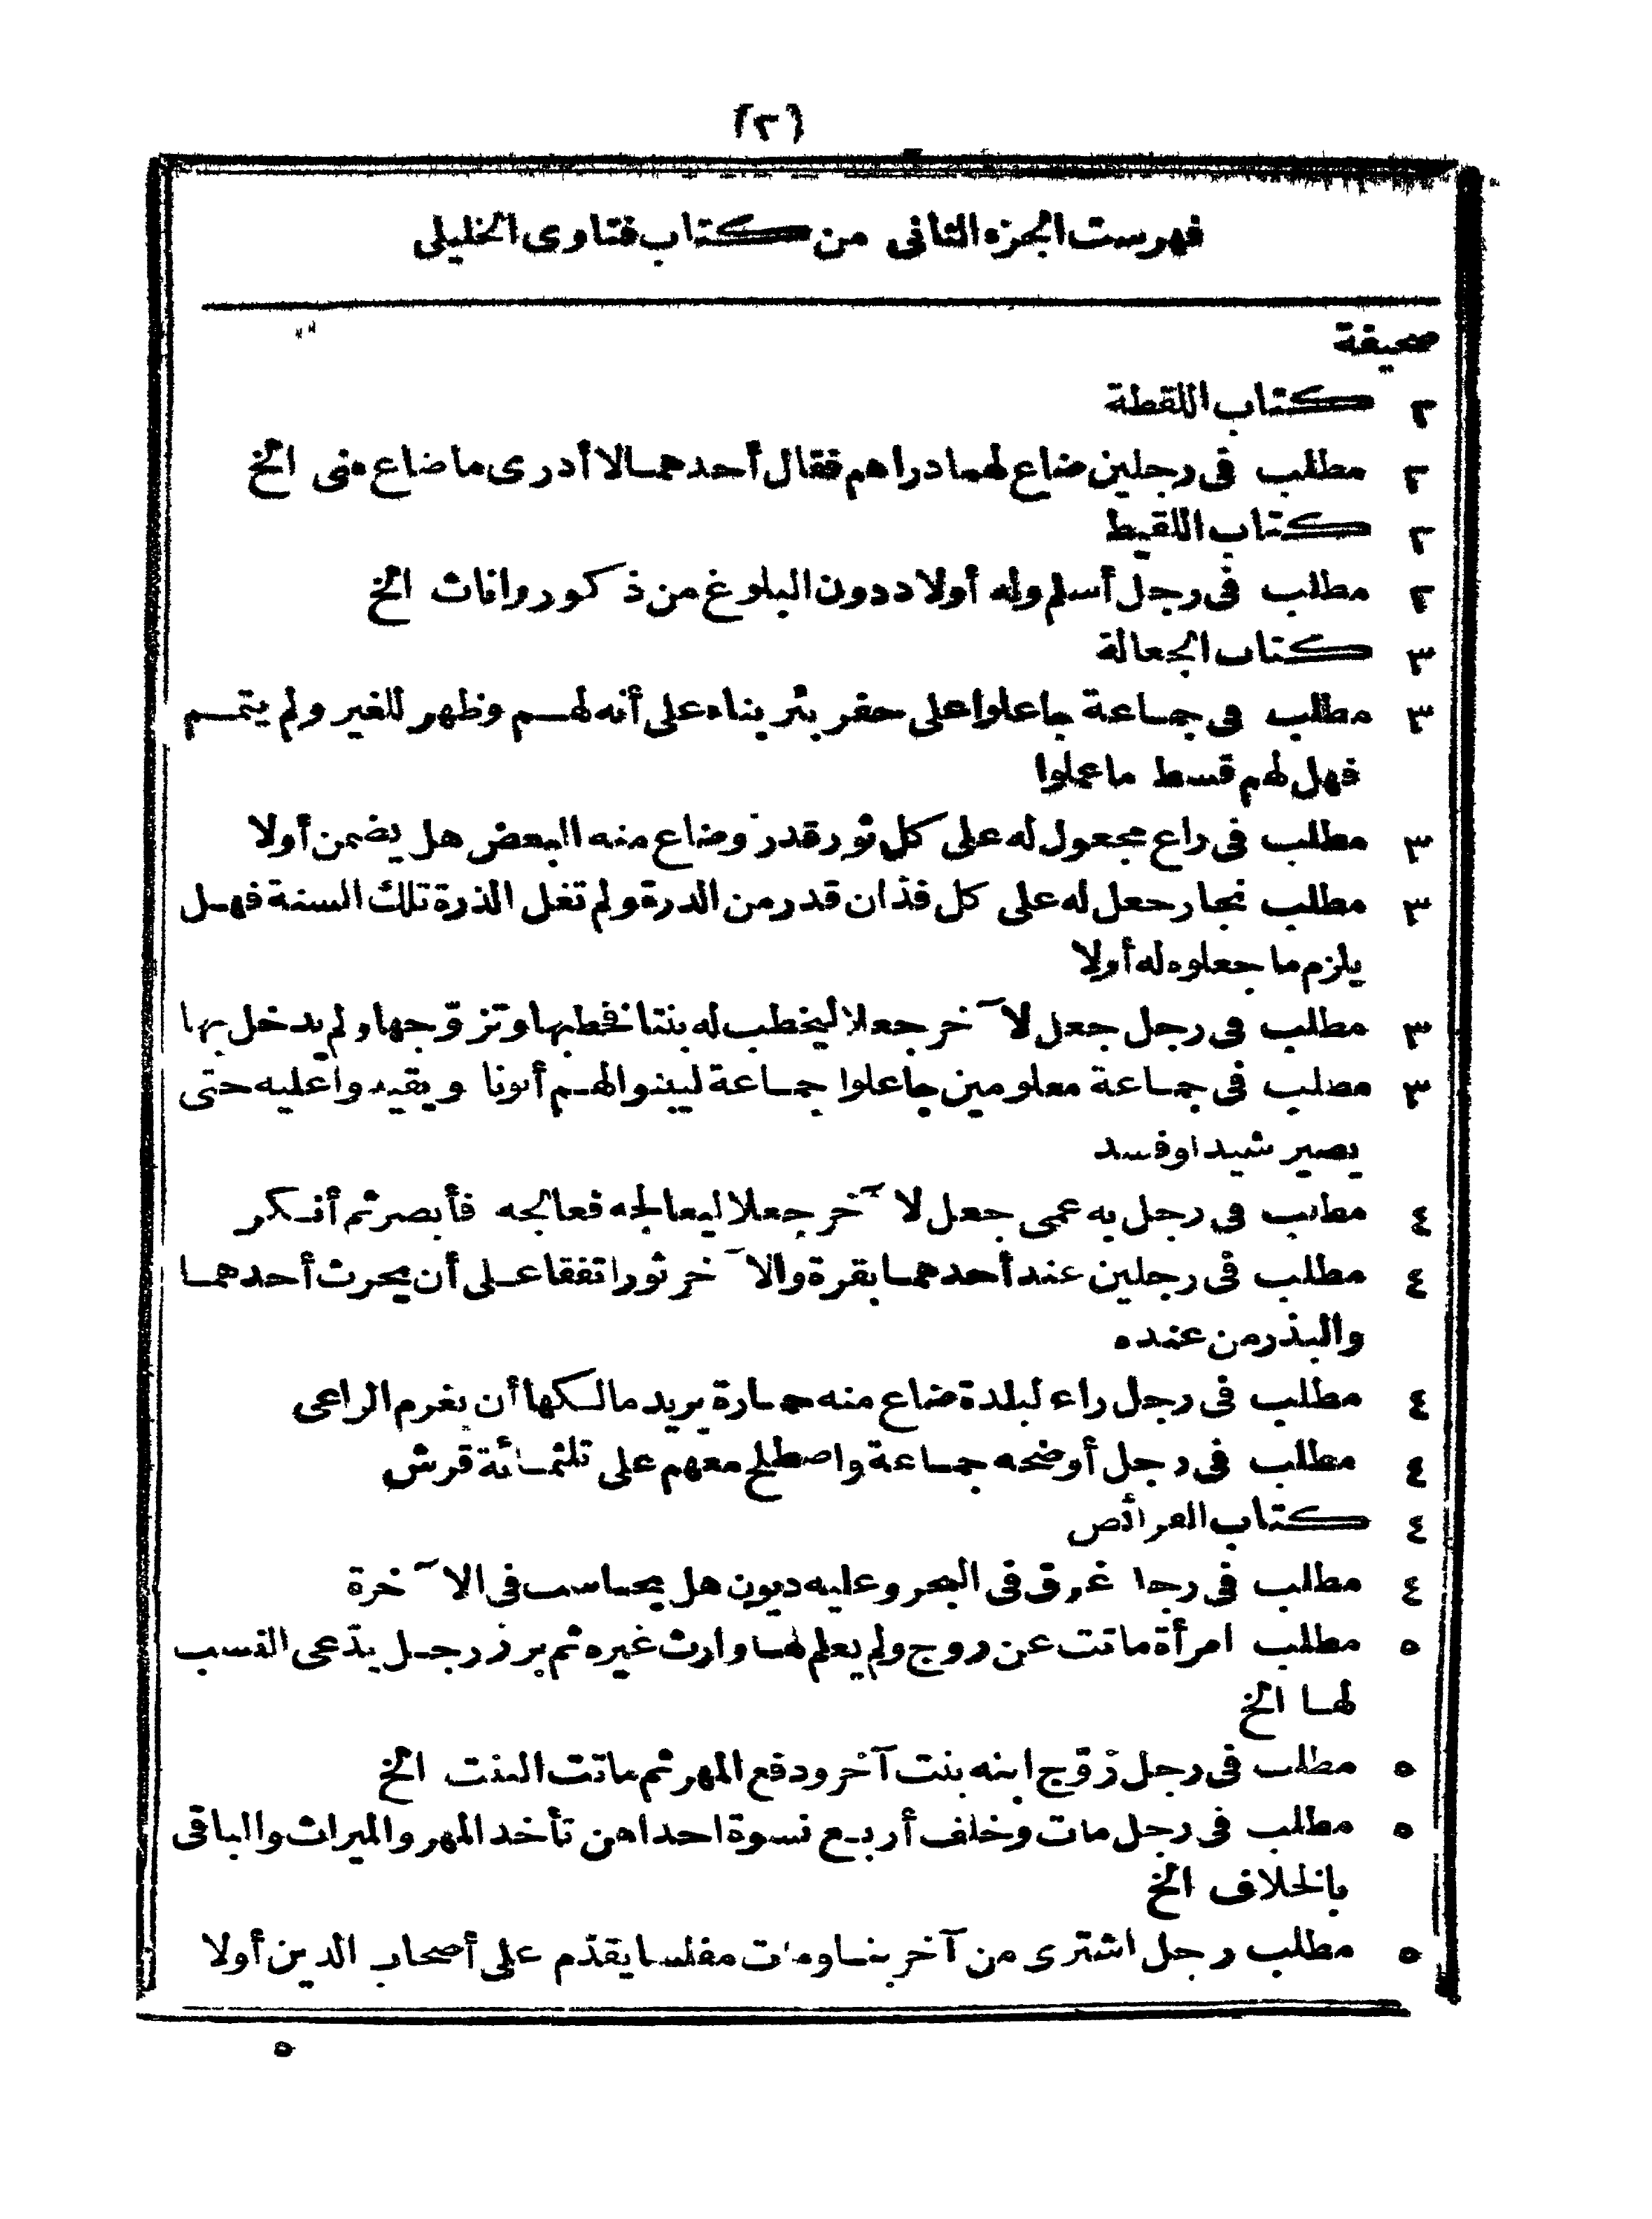 (٢)
فهرست الجزء الثانى من كتاب فتاوى الخليلى
صحيفة
٢ كتاب اللقطة
٢ مطلب فى رجلين ضاع لهما دراهم فقال أحدهما لا أدرى ما ضاع منى الخ
٢ كتاب اللقيط
٢ مطلب فى رجل أسلم وله أولاد دون البلوغ من ذكور واناث الخ
٣ كتاب الجعالة
٣ مطلب فى جماعة جاعلوا على حفر بئر بناء على أنه لهم وظهر للغير ولم يتمم
فهل لهم قسط ما عملوا
٣ مطلب فى راع مجعول له على كل ثور قدر وضاع منه البعض هل يضمن أولا
٣ مطلب نجار جعل له على كل فدان قدر من الذرة ولم تغل الذرة تلك السنة فهل
يلزم ما جعلوه له أولا
٣ مطلب فى رجل جعل لآخر جعلا ليخطب له بنتا فخطبها وتزوّجها ولم يدخل بها
٣ مطلب فى جماعة معلومين جاعلوا جماعة ليبنوا لهم أتونا ويقيدوا عليه حتى
يصير شيدا وفسد
٤ مطلب فى رجل به عمى جعل لآخر جعلا ليعالجه فعالجه فأبصر ثم أنكر
٤ مطلب فى رجلين عند أحدهما بقرة والآخر ثور اتفقا على أن يحرث أحدهما
والبذر من عنده
٤ مطلب فى رجل راع لبلدة ضاع منه حمارة يريد مالكها أن يغرم الراعى
٤ مطلب فى رجل أوضحه جماعة واصطلح معهم على ثلثمائة قرش
٤ كتاب الفرائض
٤ مطلب فى رجل غرق فى البحر وعليه ديون هل يحاسب فى الآخرة
٥ مطلب امرأة ماتت عن زوج ولم يعلم لها وارث غيره ثم برز رجل يدّعى النسب
لها الخ
٥ مطلب فى رجل زوّج ابنه بنت آخر ودفع المهر ثم ماتت البنت الخ
٥ مطلب فى رجل مات وخلف أربع نسوة احداهن تأخذ المهر والميراث والباقى
بالخلاف الخ
٥ مطلب رجل اشترى من آخر بنسا ومات مفلسا يقدّم على أصحاب الدين أولا
٥